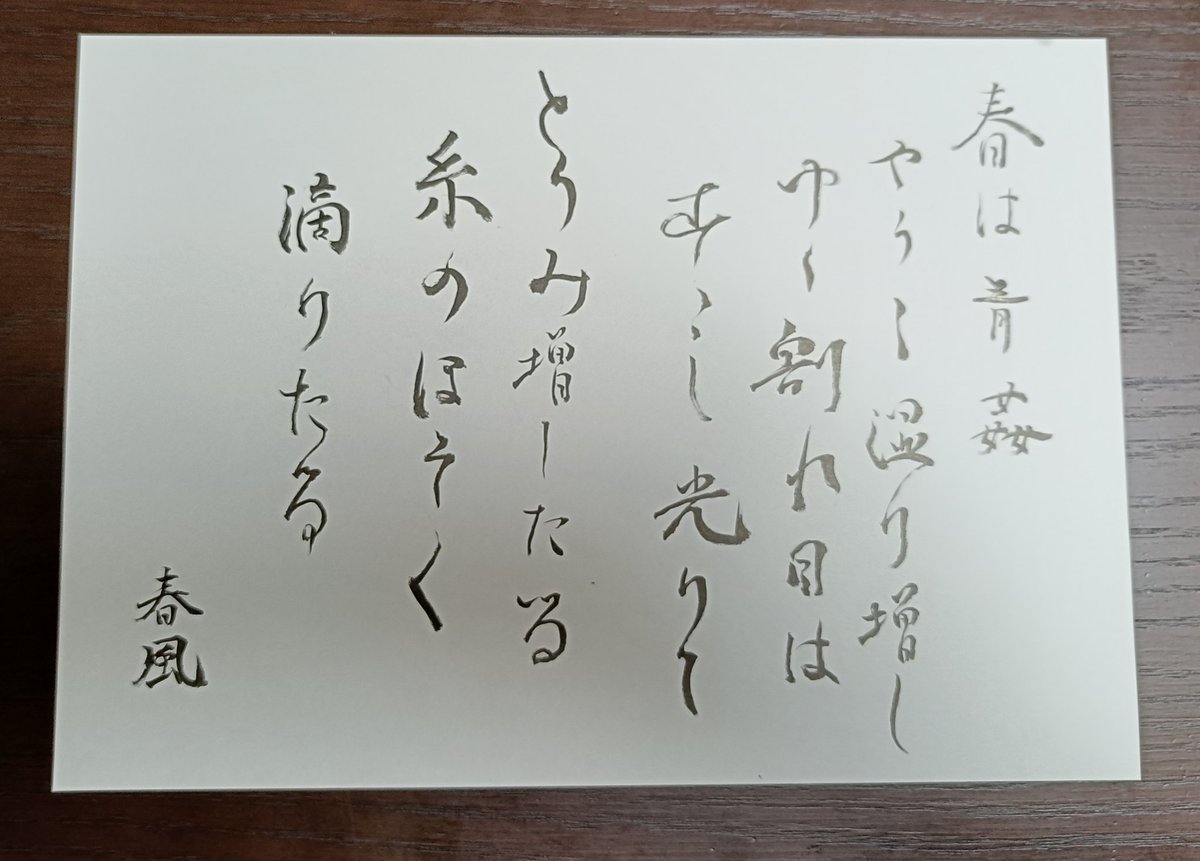 春は青姦
やう〱湿り増し
ゆく割れ目は
すこし光りて
とろみ増したる
糸のほそく
滴りたる
春風